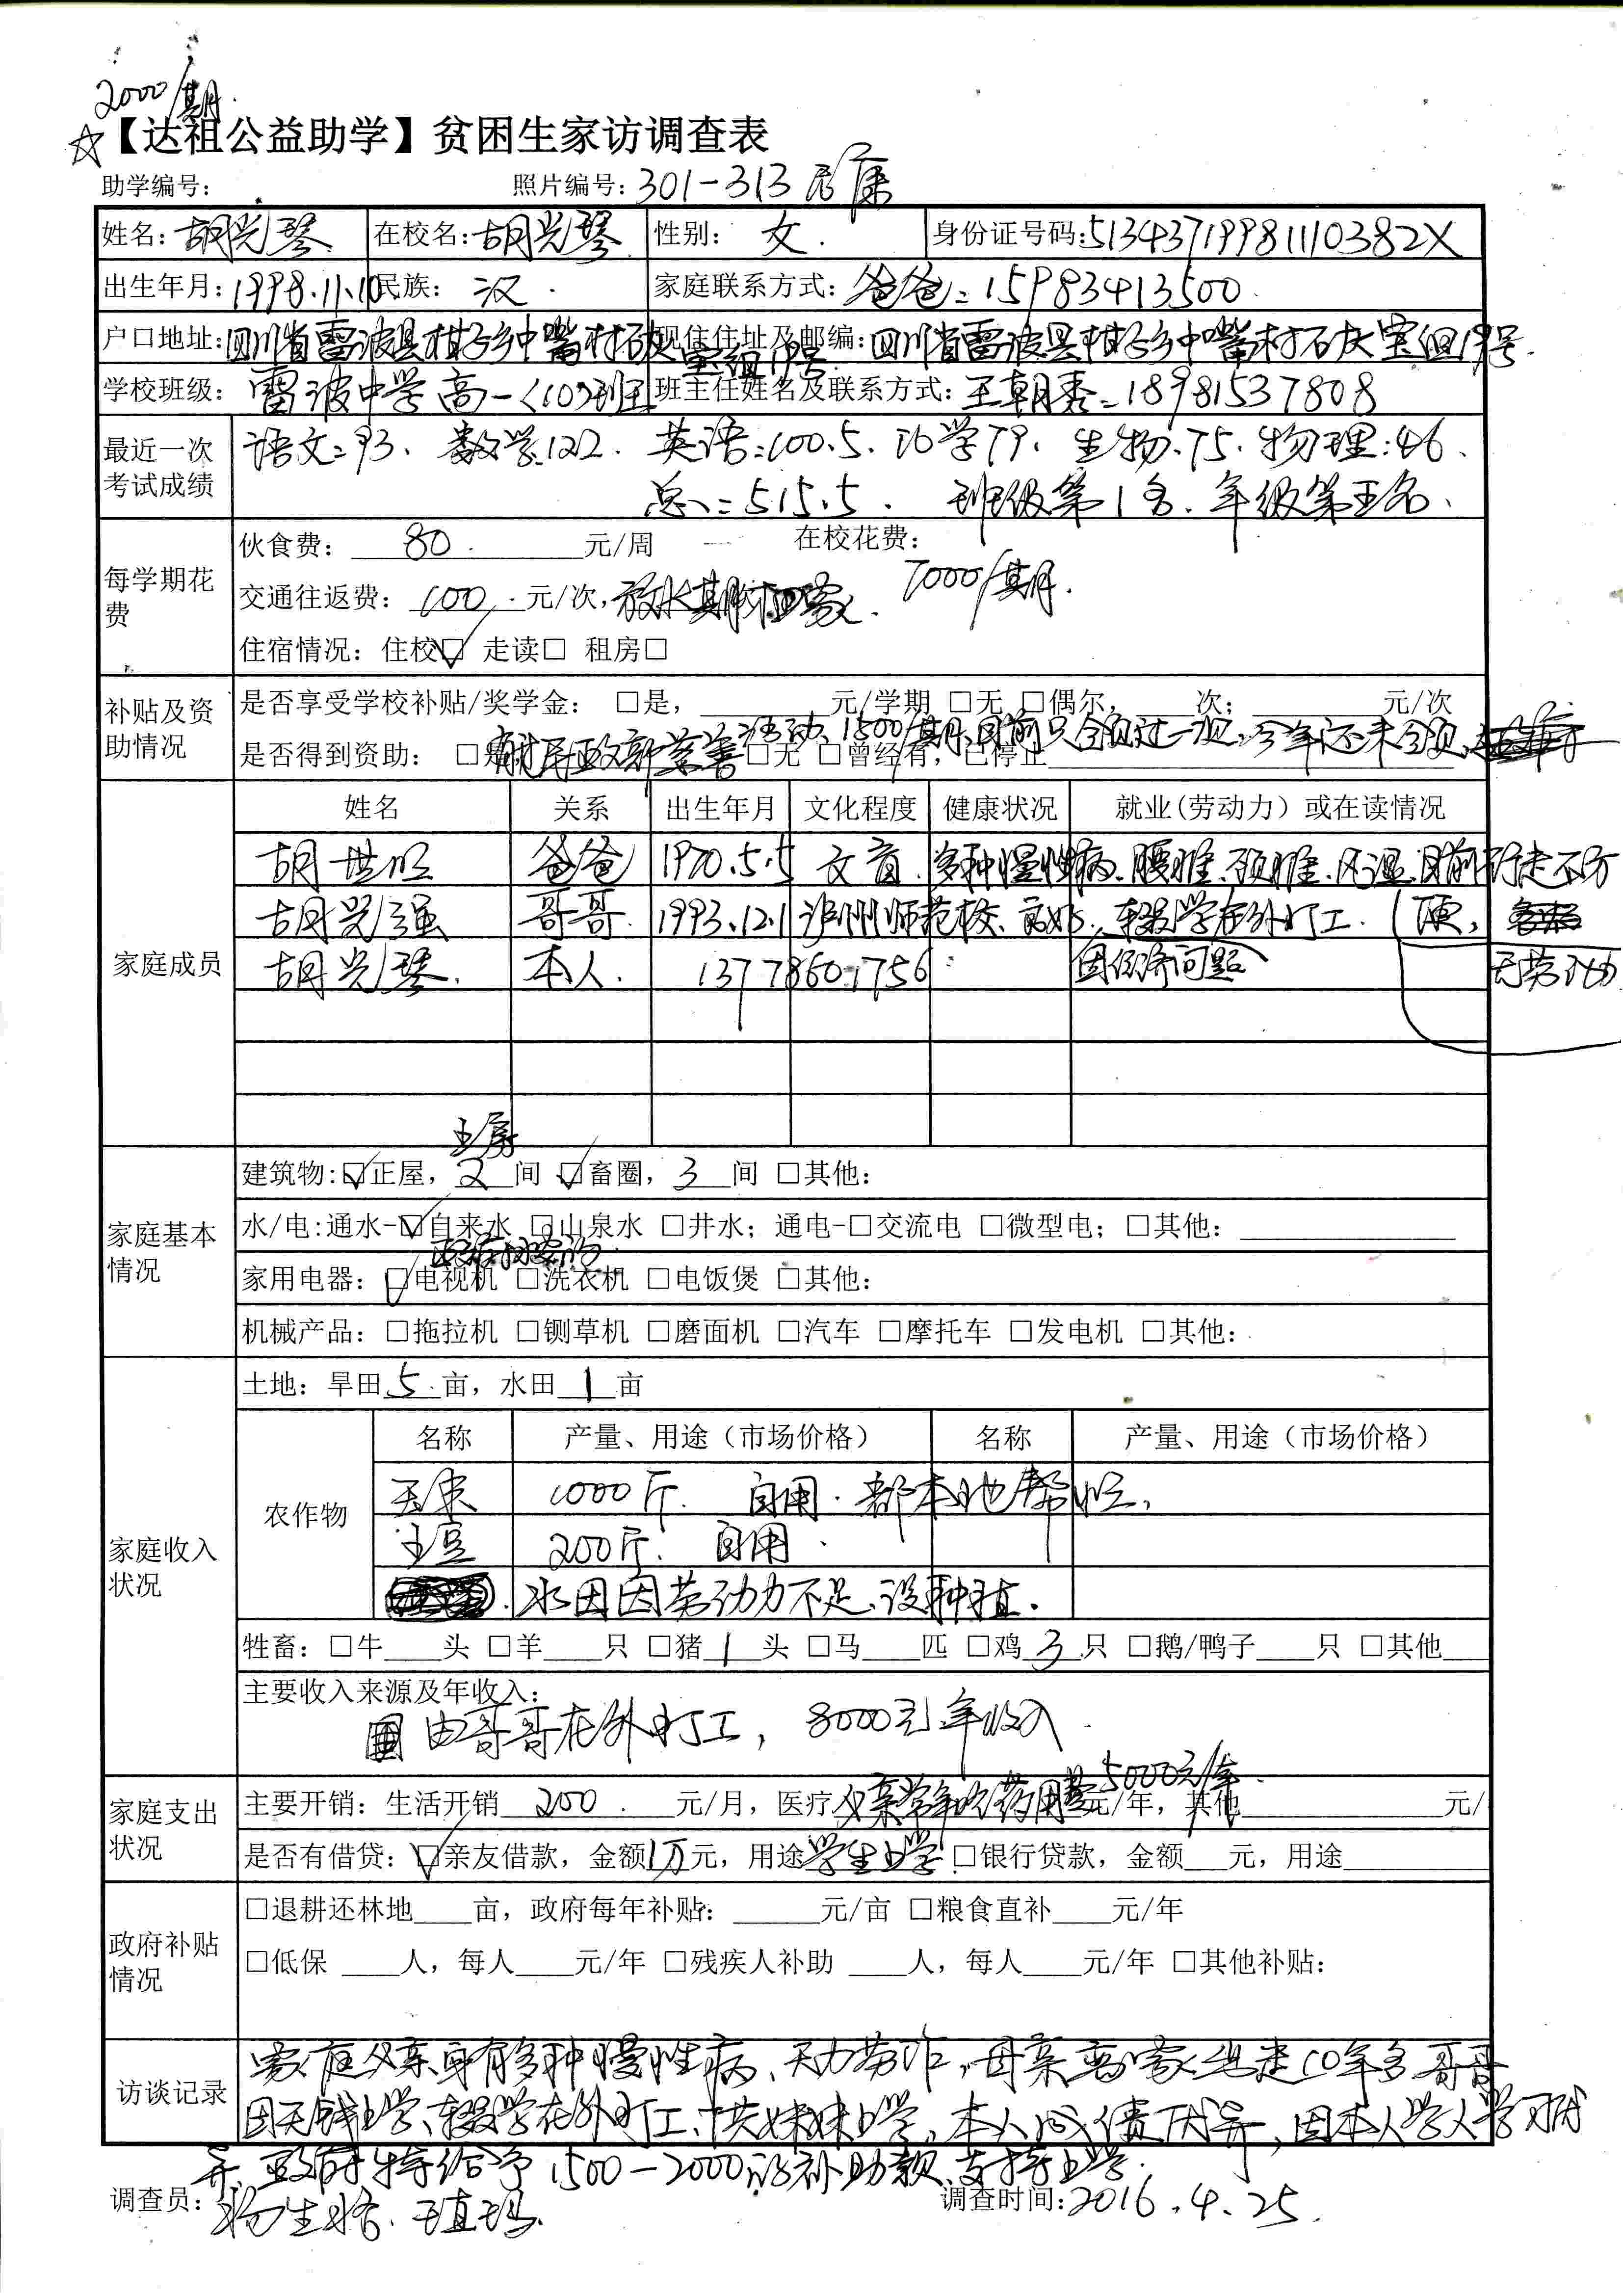 2000/期.
☆【达祖公益助学】贫困生家访调查表
助学编号: 照片编号: 301-313
姓名: 胡光琴 在校名: 胡光琴 性别: 女. 身份证号码: 51343719981110382X
出生年月: 1998.11.10 民族: 汉. 家庭联系方式: 爸爸: 15983413500
户口地址: 四川省雷波县柑子乡中嘴村石灰窑组19号 现住住址及邮编: 四川省雷波县柑子乡中嘴村石灰窑组19号.
学校班级: 雷波中学高一<10>班 班主任姓名及联系方式: 王朝秀: 18981537808
最近一次考试成绩 语文: 93. 数学: 122. 英语: 100.5. 化学79. 生物.75. 物理: 46.
总: 515.5. 班级第1名. 年级第五名.
每学期花费 伙食费: 80. 元/周 在校花费: 7000/期.
交通往返费: 100. 元/次, 放大期才回家.
住宿情况: 住校☑ 走读□ 租房□
补贴及资助情况 是否享受学校补贴/奖学金: □是, 元/学期 □无 □偶尔, 次; 元/次
是否得到资助: □是 由民政部慈善活动, 1500/期, 目前只领过一次, 今年还未领. □无 □曾经有, 已停止
家庭成员 姓名 关系 出生年月 文化程度 健康状况 就业(劳动力)或在读情况
爸爸 1970.5.5 文盲. 多种慢性病. 腰椎. 颈椎. 风湿. 目前行走不方便, 无劳动
胡光强 哥哥. 1993.12.1 泸州师范校. 良好. 辍学在外打工.
因经济问题
胡光琴. 本人. 13778601756
家庭基本情况 土房
建筑物: ☑正屋, 2 间 ☑畜圈, 3 间 □其他:
水/电:通水-☑自来水 □山泉水 □井水; 通电-□交流电 □微型电; □其他:
家用电器: ☑电视机 □洗衣机 □电饭煲 □其他:
机械产品: □拖拉机 □铡草机 □磨面机 □汽车 □摩托车 □发电机 □其他:
家庭收入状况 土地: 旱田 5. 亩, 水田 1 亩
农作物 名称 产量、用途(市场价格) 名称 产量、用途(市场价格)
玉米 1000斤. 自用. 都本地帮忙.
土豆 200斤. 自用.
水田因劳动力不足. 没种植.
牲畜: □牛 头 □羊 只 □猪 1 头 □马 匹 □鸡 3 只 □鹅/鸭子 只 □其他
主要收入来源及年收入:
由哥哥在外打工, 8000元年收入.
家庭支出状况 主要开销: 生活开销 200. 元/月, 医疗 父亲常年吃药用费5000元/年. 元/年, 其他 元/
是否有借贷: ☑亲友借款, 金额1万元, 用途学生上学. □银行贷款, 金额 元, 用途
政府补贴情况 □退耕还林地 亩, 政府每年补贴: 元/亩 □粮食直补 元/年
□低保 人, 每人 元/年 □残疾人补助 人, 每人 元/年 □其他补贴:
访谈记录 家庭父亲身有多种慢性病、无力劳作, 母亲离家出走10年多 哥哥
因无钱上学、辍学在外打工、供妹妹上学, 本人成绩优异, 因本人学习优
异, 政府特给予1500-2000的补助款. 支持上学.
调查员: 调查时间: 2016.4.25.